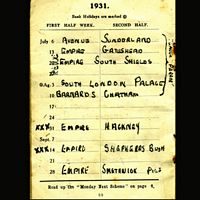 1931.
Bank Holidays are marked
FIRST HALF WEEK. SECOND HALF.
July 6 AVENUE SUNDERLAND
13 EMPIRE GATESHEAD
20 EMPIRE SOUTH SHIELDS
27
Aug. 3 SOUTH LONDON PALACE
10 BARNARDS CHATHAM
17
24
31 EMPIRE HACKNEY
Sept. 7
14 EMPIRE SHEPHERDS BUSH
21
28 EMPIRE SMETHWICK
Read up "On Monday Next Scheme" on page 4.